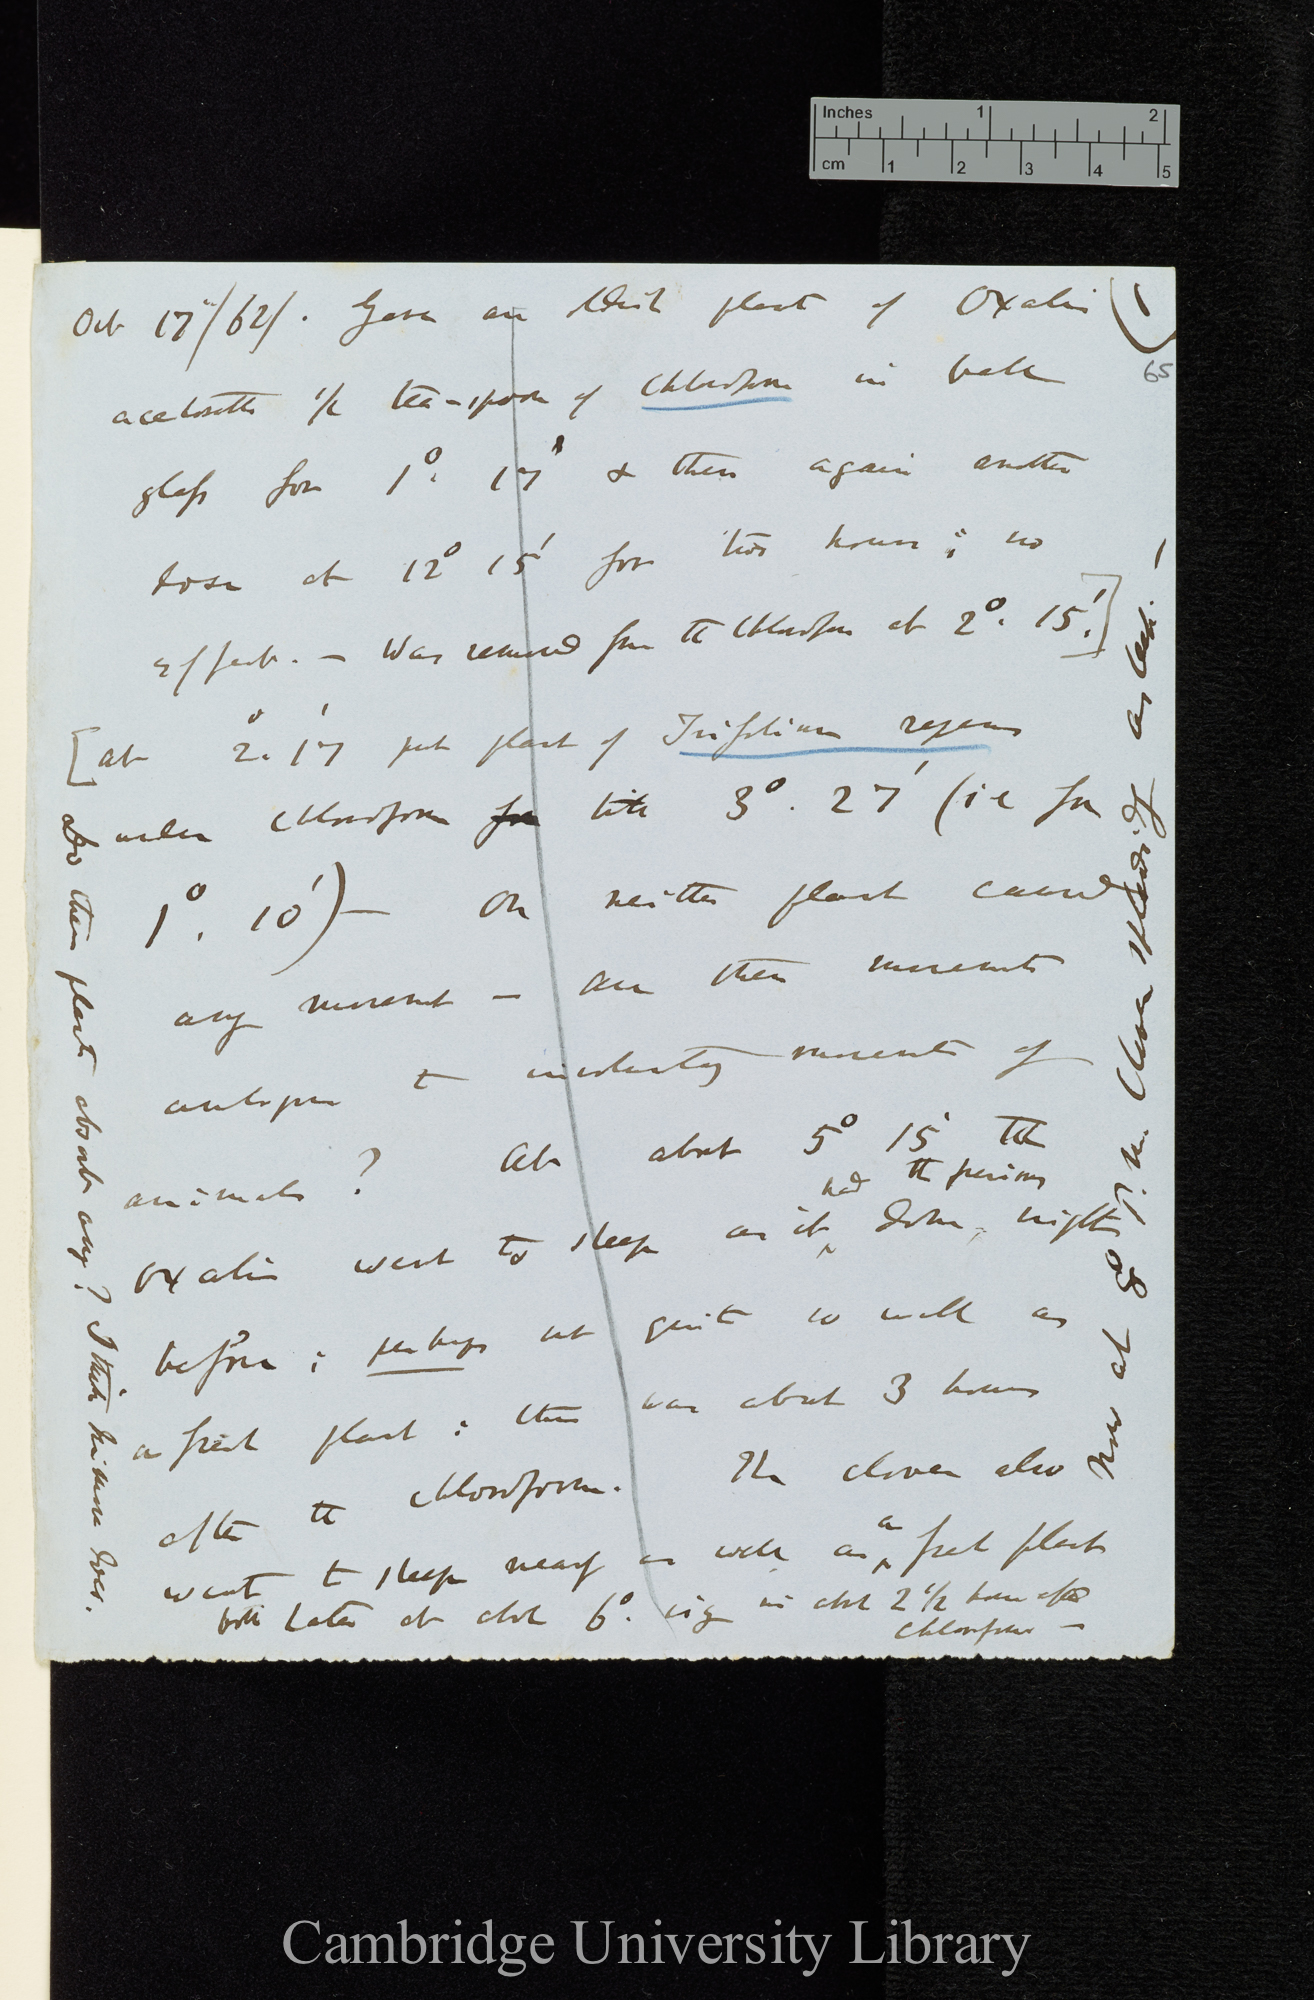 Inches 1 2
cm 1 2 3 4 5
(1
65
Oct 17th/62/. Gave an oldish plant of Oxalis
acetosella ½ tea-spoon of chloroform in bell
glass for 1°. 17' & then again another
dose at 12° 15' for two hours; no
effect. — Was removed from the chloroform at 2°. 15'.]
[at 2°. 17' put plant of Trifolium repens
under chloroform for till 3°. 27' (ie for
1°. 10')— On neither plant caused
any movement — are these movements
analogous to involuntary movements of
animals? At about 5° 15' the
had the previous
Oxalis went to sleep as it done, night
before; perhaps not quite so well as
a fresh plant; this was about 3 hours
after the chloroform. The clover also
went to sleep nearly as well as a fresh plant
both later at about 6°. in about 2½ hours after
chloroform —
Do these plants absorb any? I think mimosa does.
Now at 8° P.m. Clover splendidly asleep.
Cambridge University Library